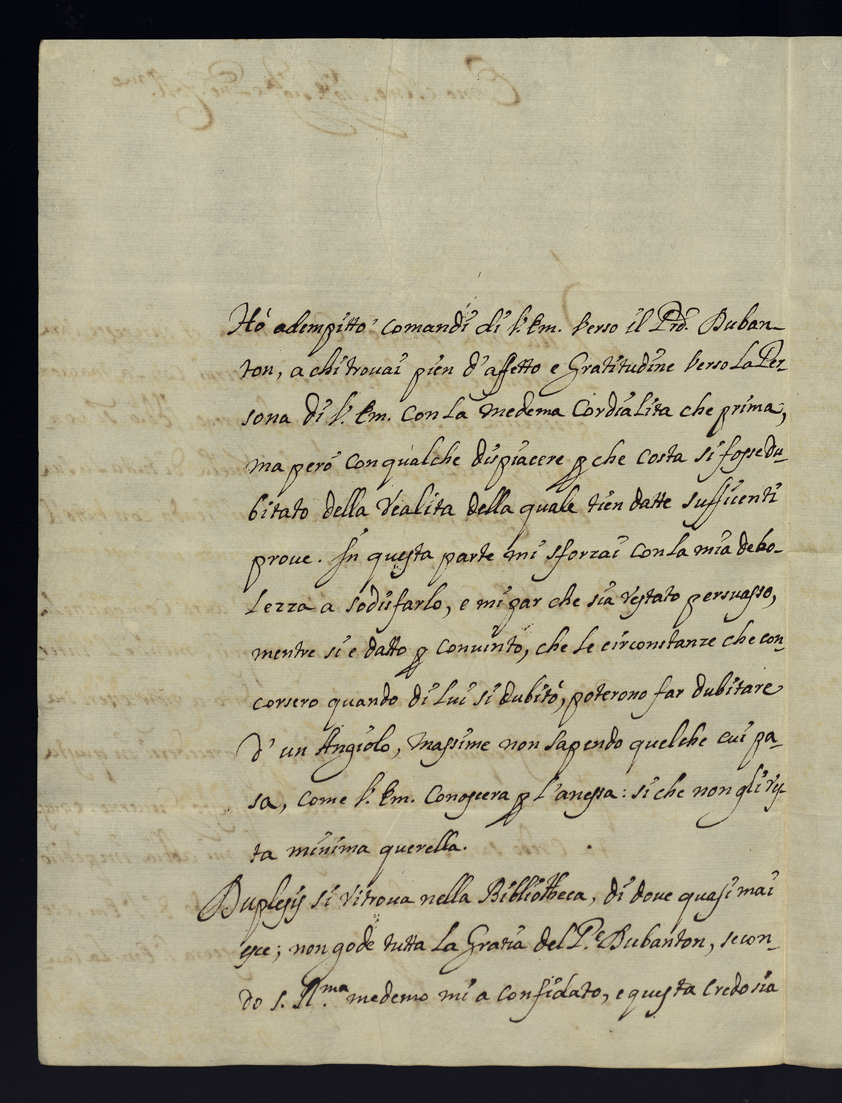 Hò adempitto comandi di V. Em. Verso il Prd. Duban-
ton, a chi trovai pien d'affetto e Gratitudine Verso La Per-
sona di V. Em. con La medema Cordialita che prima,
ma però con qualche dispiacere p che costa si fosse du-
bitato della realita della quale tien datte sufficenti
prove. In questa parte mi sforzai con La mia debo-
Lezza a sodisfarlo, e mi par che sia restato persuasso,
mentre si e datto p convinto, che Le circonstanze che con-
corsero quando di Lui si dubitò, poterono far dubitare
d'un Angiolo, massime non sapendo quelche cui pa-
sa, come V. Em. Conoscera p L'anessa: si che non gli res-
ta minima querella.
Duplesis si ritrova nella Bibliotheca, di dove quasi mai
esce; non gode tutta La Gratia del P.e Dubanton, secon-
do medemo mi a confidato, e questa credo sia